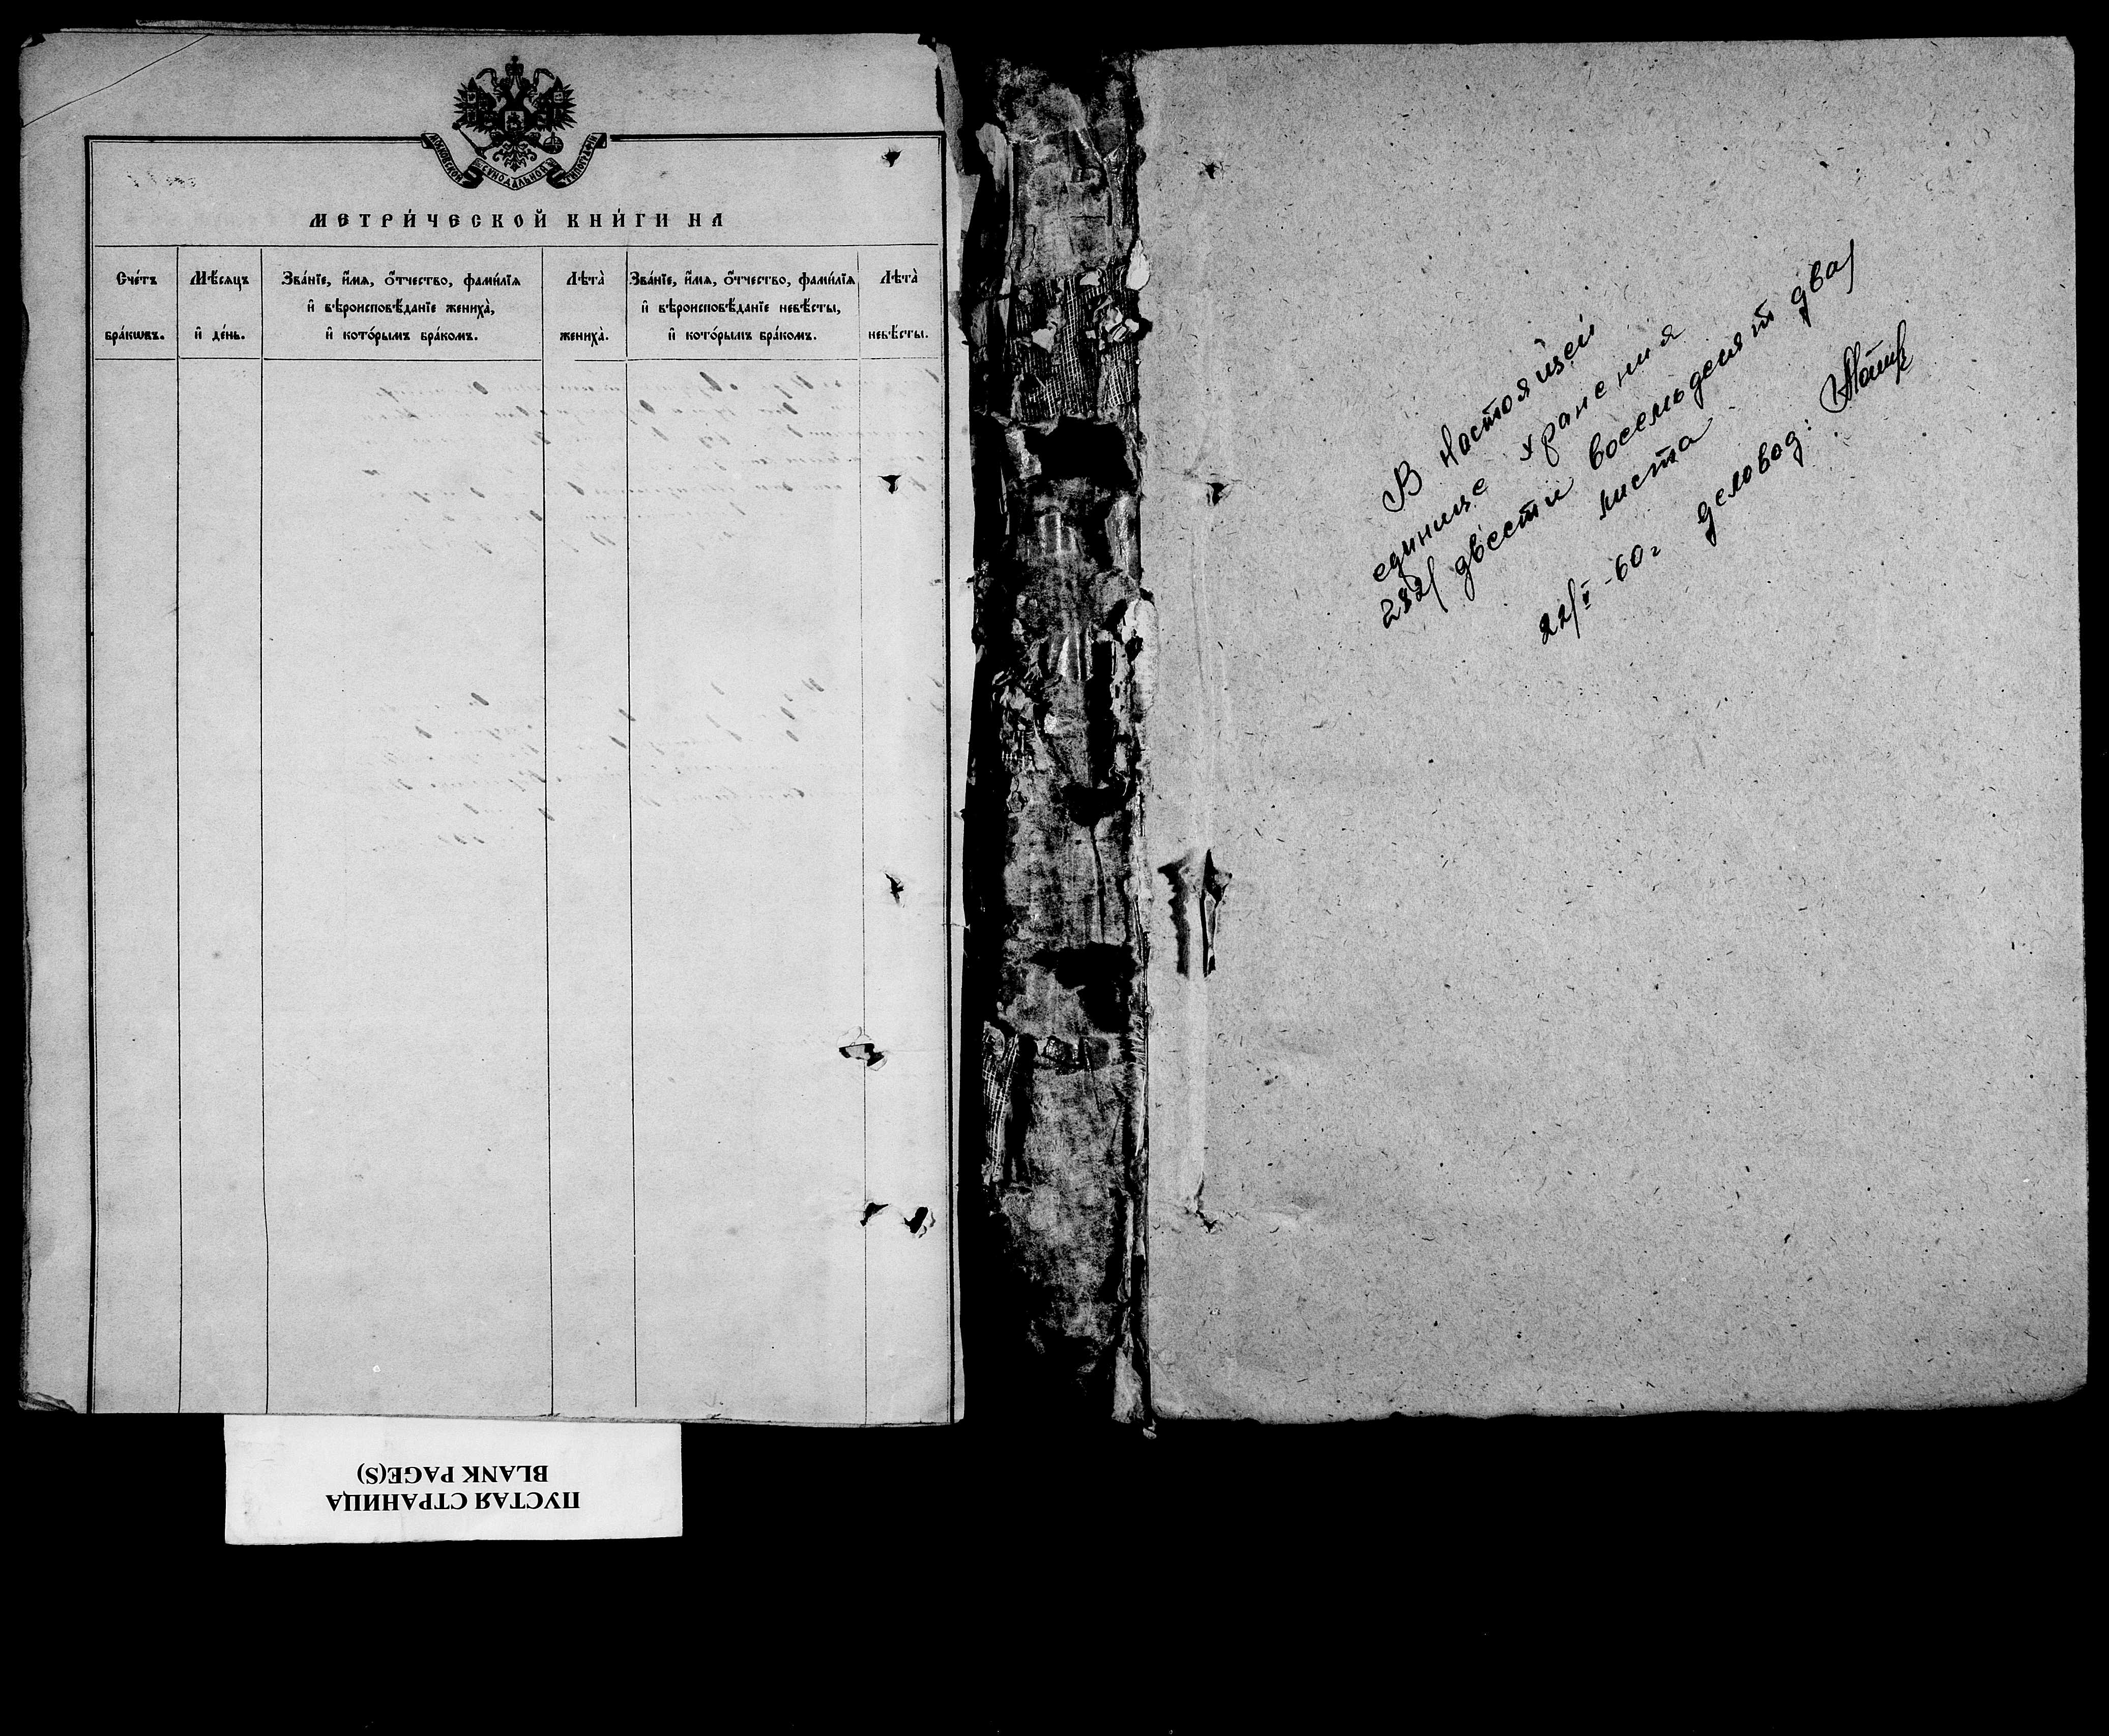 МОСКОВСКОЙ СѴНОДАЛЬНОЙ ТИПОГРАФІИ
МЕТРИ́ЧЕСКОЙ КНИ́ГИ НА
Сче́тъ бра́кѡвъ.
Мѣ́сяцъ и҆ де́нь.
Зва́нїе, и҆́мѧ, ѻ҆́тчество, фами́лїѧ
и҆ вѣроисповѣ́данїе жениха̀,
и҆ кото́рымъ бра́комъ.
Лѣта̀ жениха̀.
Зва́нїе, и҆́мѧ, ѻ҆́тчество, фами́лїѧ
и҆ вѣроисповѣ́данїе невѣ́сты,
и҆ кото́рымъ бра́комъ.
Лѣта̀ невѣ́сты.
ПУСТАЯ СТРАНИЦА
BLANK PAGE(S)
В настоящей
единице хранения
282/ двести восемьдесят два/
листа
22/V-60г деловод: